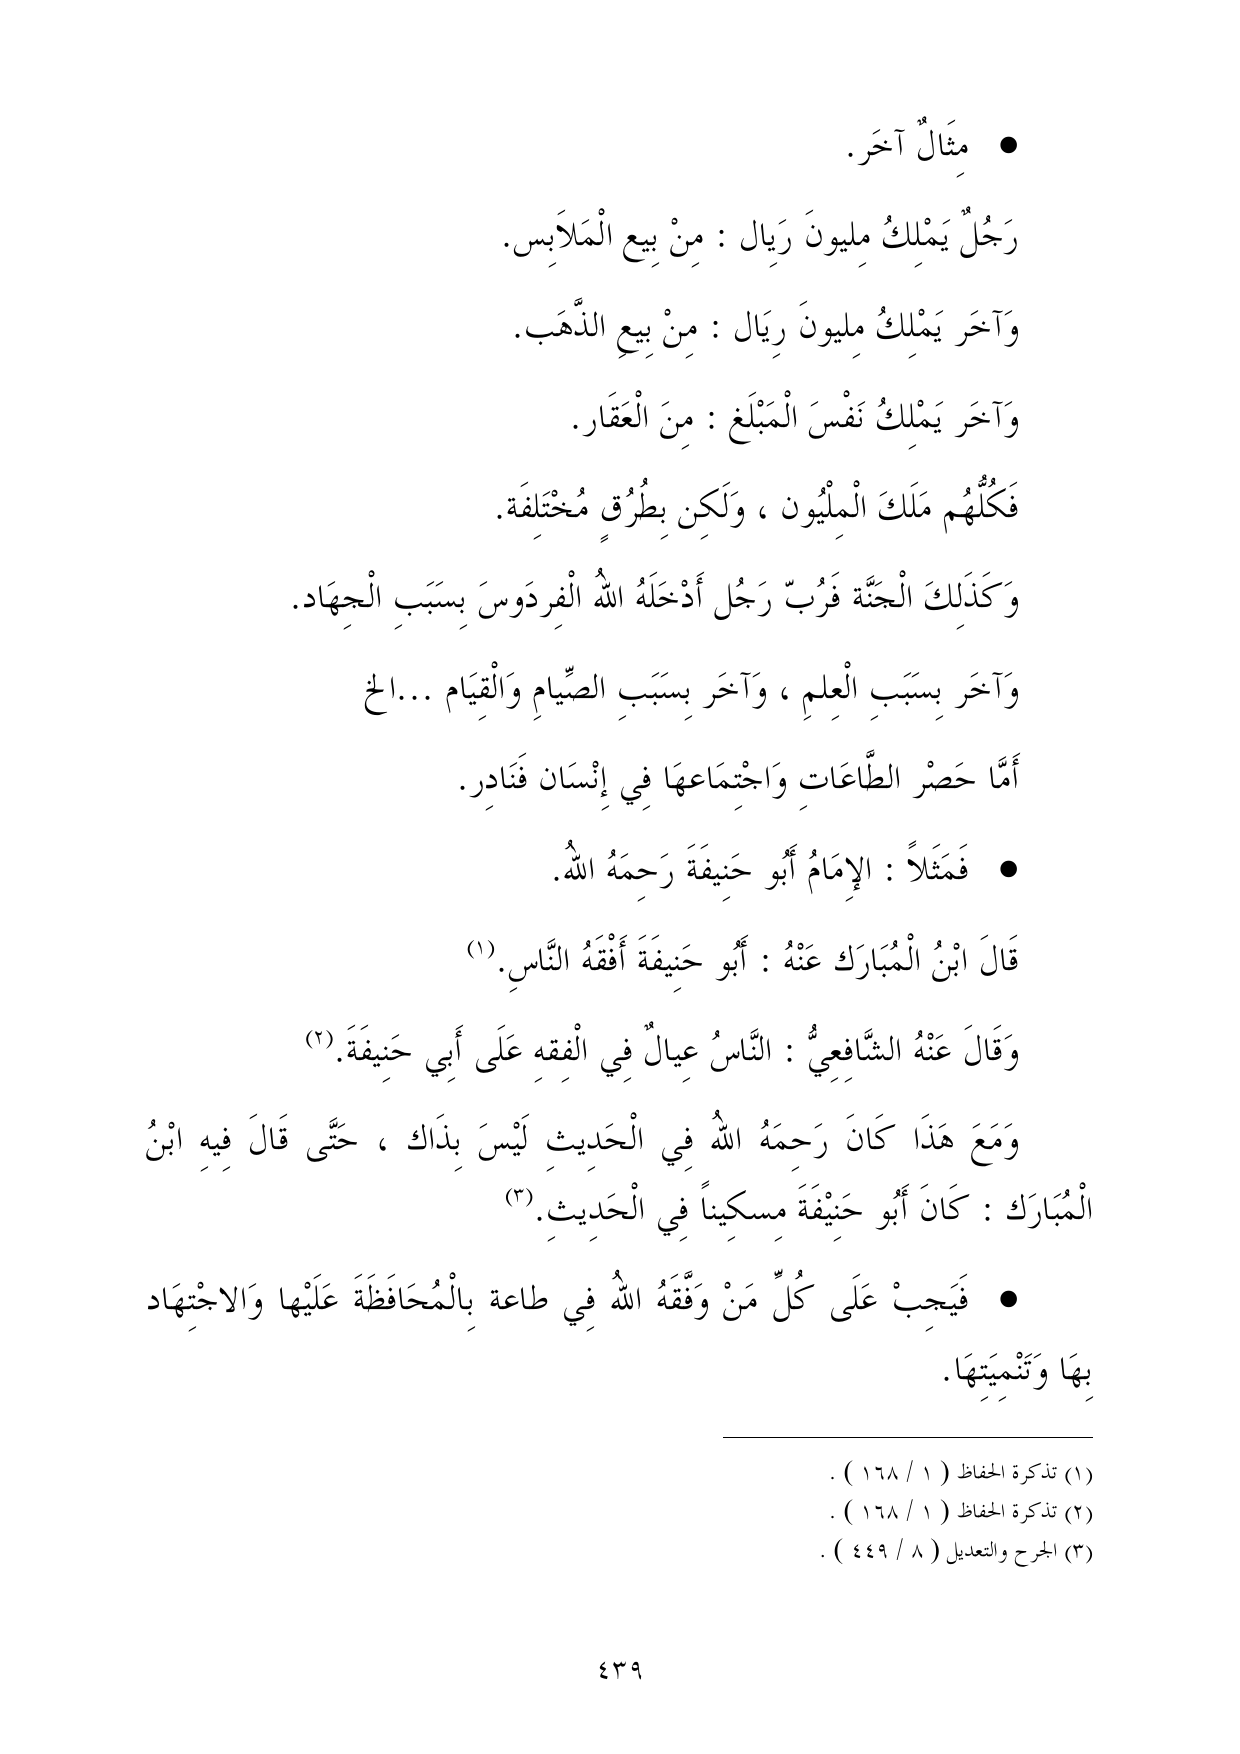 ● مِثَالٌ آخَر.
رَجُلٌ يَمْلِكُ مِليونَ رَيِال : مِنْ بِيع الْمَلاَبِس.
وَآخَر يَمْلِكُ مِليونَ رِيَال : مِنْ بِيعِ الذَّهَب.
وَآخَر يَمْلِكُ نَفْسَ الْمَبْلَغ : مِنَ الْعَقَار.
فَكُلُّهُم مَلَكَ الْمِلْيُون ، وَلَكِن بِطُرُقٍ مُخْتَلِفَة.
وَكَذَلِكَ الْجَنَّة فَرُبّ رَجُل أَدْخَلَهُ اللهُ الْفِردَوسَ بِسَبَبِ الْجِهَاد.
وَآخَر بِسَبَبِ الْعِلمِ ، وَآخَر بِسَبَبِ الصِّيامِ وَالْقِيَام ...الخ
أَمَّا حَصْر الطَّاعَاتِ وَاجْتِمَاعهَا فِي إِنْسَان فَنَادِر.
● فَمَثَلاً : الإِمَامُ أَبُو حَنِيفَةَ رَحِمَهُ اللهُ.
قَالَ ابْنُ الْمُبَارَك عَنْهُ : أَبُو حَنِيفَةَ أَفْقَهُ النَّاسِ.(١)
وَقَالَ عَنْهُ الشَّافِعِيُّ : النَّاسُ عِيالٌ فِي الْفِقهِ عَلَى أَبِي حَنِيفَةَ.(٢)
وَمَعَ هَذَا كَانَ رَحِمَهُ اللهُ فِي الْحَدِيثِ لَيْسَ بِذَاك ، حَتَّى قَالَ فِيهِ ابْنُ
الْمُبَارَك : كَانَ أَبُو حَنِيْفَةَ مِسكِيناً فِي الْحَدِيثِ.(٣)
● فَيَجِبْ عَلَى كُلِّ مَنْ وَفَّقَهُ اللهُ فِي طاعة بِالْمُحَافَظَةَ عَلَيْها وَالاجْتِهَاد
بِهَا وَتَنْمِيَتِهَا.
(١) تذكرة الحفاظ ( ١ / ١٦٨ ) .
(٢) تذكرة الحفاظ ( ١ / ١٦٨ ) .
(٣) الجرح والتعديل ( ٨ / ٤٤٩ ) .
٤٣٩